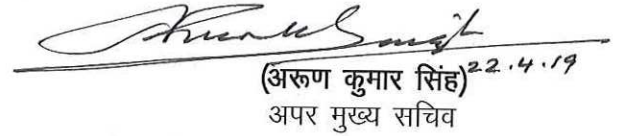 (अरूण कुमार सिंह) 22.4.19
अपर मुख्य सचिव